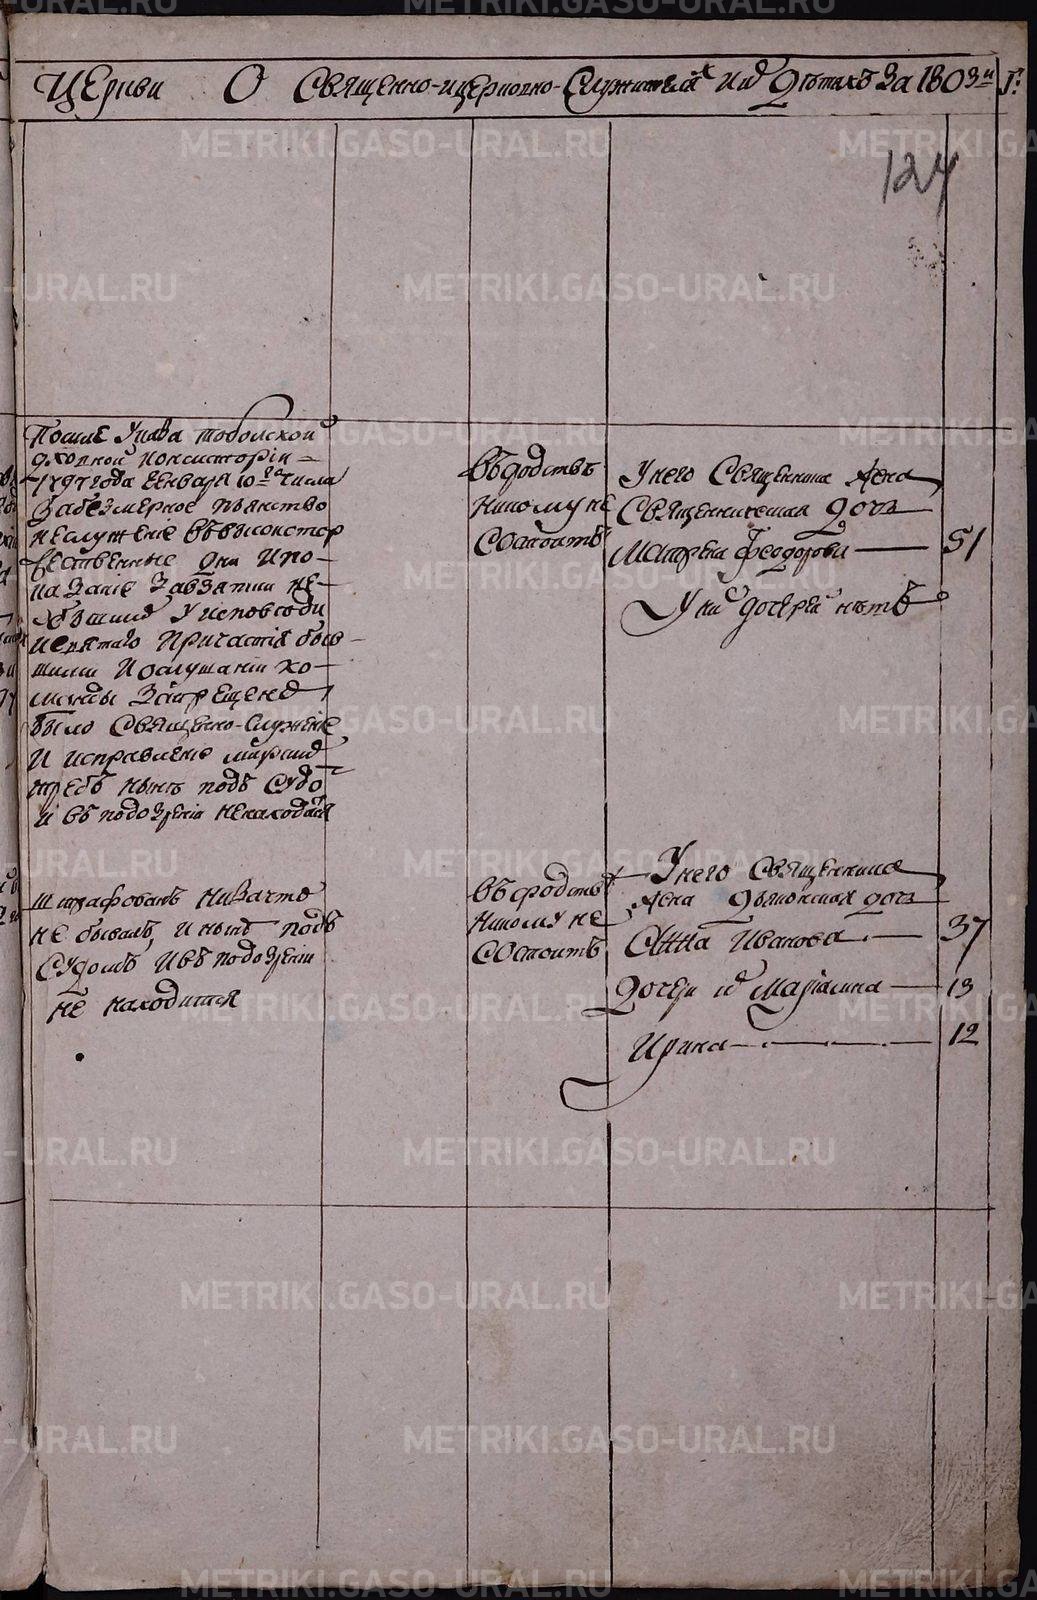 Церкви О Священно-ицерковно-Служителях и их Дѣтяхъ За 1803й Г:
124
Посиле Указа тоболской
духовной консистории
1797 года генваря 10го числа
За безмерное пьянство
неслужение въ
ственные дни и по
казание
у исповеди
и святаго Причастия быв
шими Послушании ко
манды Запрещено
было Священно-Служение
И исправление мирских
требъ нынѣ подъ судо
и въ подозрении ненаходится
въ родствѣ
никому не
Состоитъ
У него Священника Жена
Священническая дочь
Матрена Феодорова — 51
У них дочерей нѣтъ
штрафованъ ни Зачто
не бывалъ, и нынѣ подъ
Судомъ и въ подозрении
не находится
въ родствѣ
никому не
Состоитъ
У него Священника
Жена дьяконская дочь
Анна Иванова — 37
Дочери их Мариамна — 13
Ирина — 12
METRIKI.GASO-URAL.RU